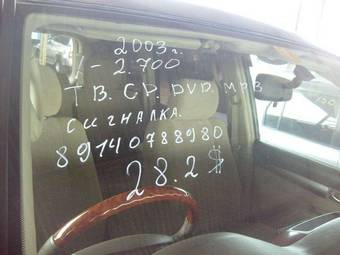 2003г.
V-2.700
ТВ. CD. DVD. MP3
сигналка.
89140788980
28.2 $